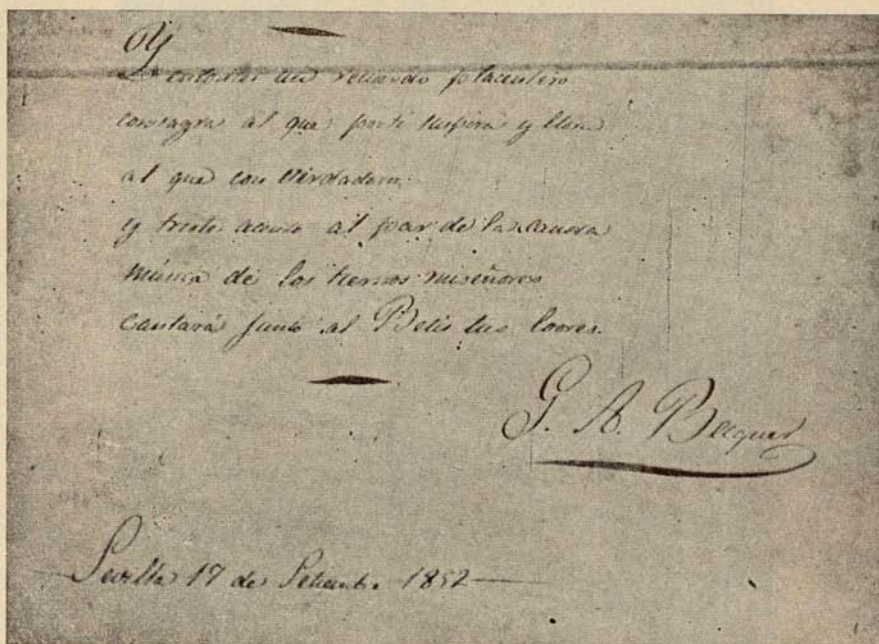 Y
un recuerdo placentero
consagra al que por ti suspira y llora
al que con verdadera
y triste acento al par de la canora
música de los tiernos ruiseñores
cantará junto al Betis tus loores.
G. A. Becquer
Sevilla 17 de Setiembre 1852